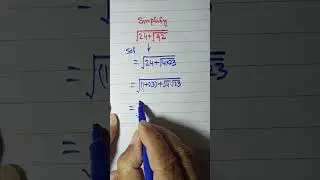 Simplify
√24+√92
Sol
= √24+√4×23
= √(1+23)+√4√23
=